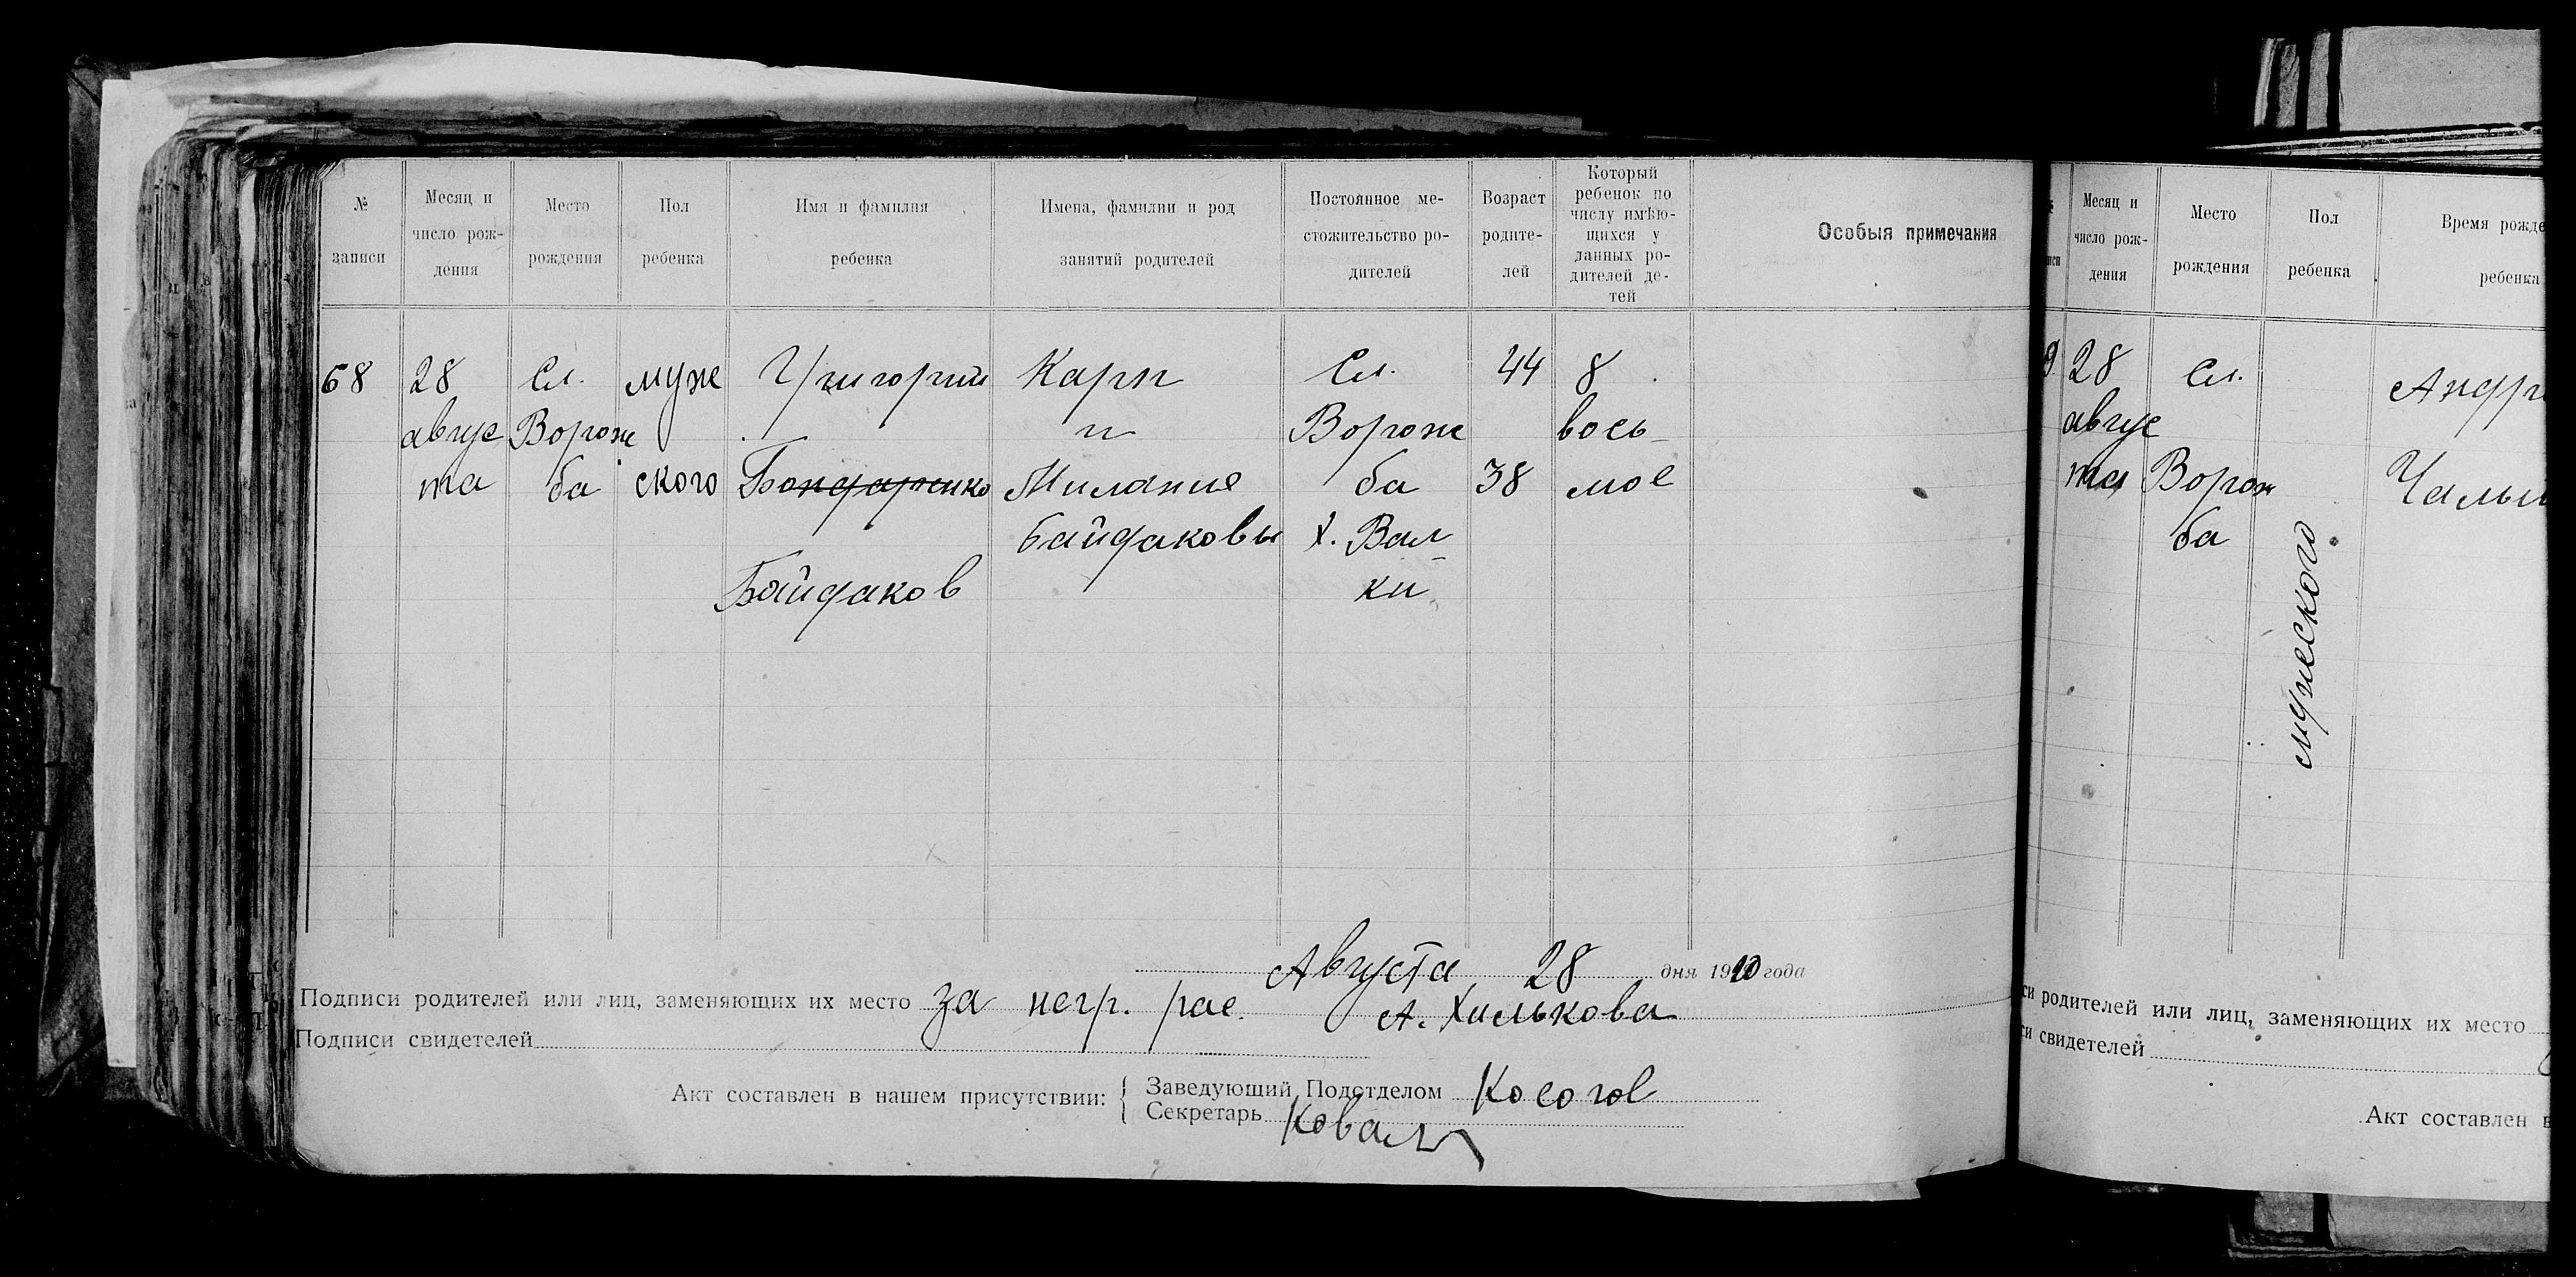 № записи
Месяц и число рож-дения
Место рождения
Пол ребенка
Имя и фамилия ребенка
Имена, фамилии и род занятий родителей
Постоянное ме-стожительство ро-дителей
Возраст родите-лей
Который ребенок по числу имѣю-щихся у данных ро-дителей де-тей
Особыя примечания
68
28
авгус
та
Сл.
Ворож
ба
муж
ского
Григорий
Бондаренко
Байдаков
Карп
и
Милания
Байдаковы
Сл.
Ворож
ба
х. Вал
ки
44
38
8
вось
мое
Августа 28 дня 1920 года
Подписи родителей или лиц, заменяющих их место за негр. рас. А. Хилькова
Подписи свидетелей
Акт составлен в нашем присутствии:
Заведующий Подотделом Косогов
Секретарь Коваль
Месяц и число рож-дения
Место рождения
Пол ребенка
Время рожде
ребенка
28
авгус
та
Сл.
Ворож
ба
мужеского
Андр
Чалы
родителей или лиц, заменяющих их место
свидетелей
Акт составлен в